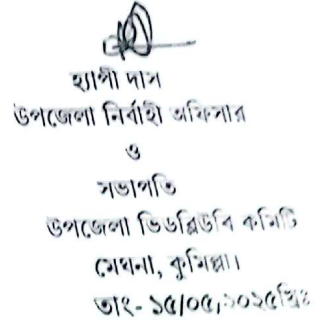 হ্যাপী দাস
উপজেলা নির্বাহী অফিসার
ও
সভাপতি
উপজেলা ভিডব্লিউবি কমিটি
মেঘনা, কুমিল্লা।
তাং- ১৫/০৫/২০২৫খ্রিঃ